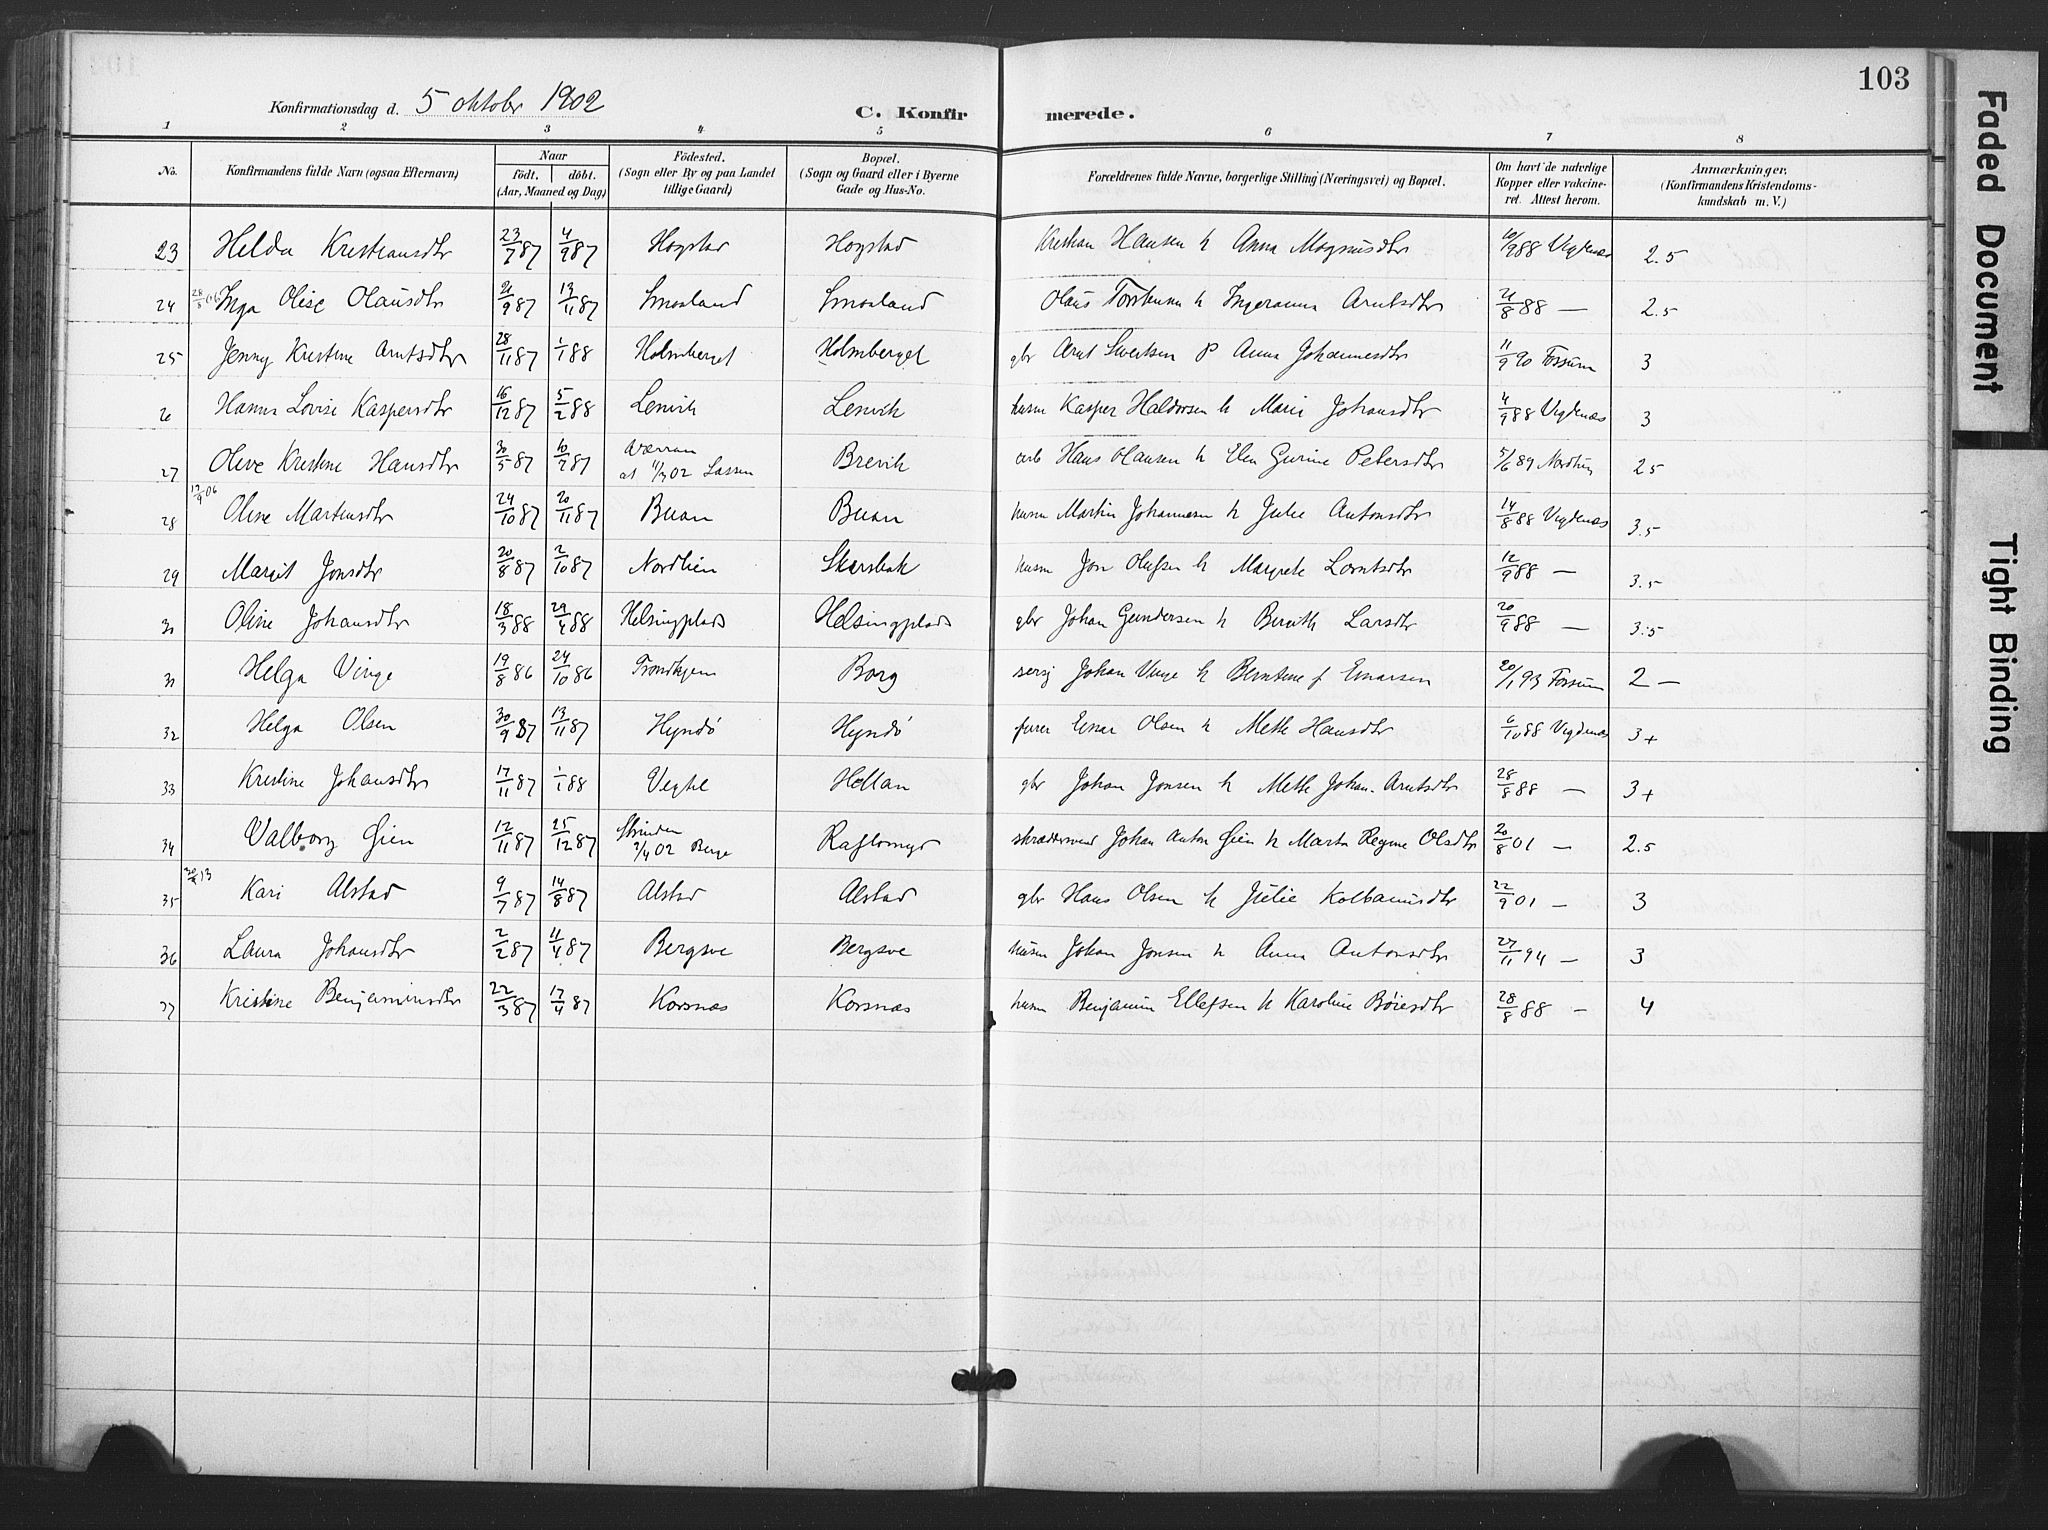 103
Konfirmationsdag d. 5 oktober 1902 C. Konfirmerede.
1 2 3 4 5 6 7 8
No. Konfirmandens fulde Navn (ogsaa Efternavn) Naar födt. döbt. (Aar, Maaned og Dag) Födested. (Sogn eller By og paa Landet tillige Gaard) Bopæl. (Sogn og Gaard eller i Byerne Gade og Hus-No. Forældrenes fulde Navne, borgerlige Stilling (Næringsvei) og Bopæl. Om havt de naturlige Kopper eller vakcineret. Attest herom. Anmærkninger. (Konfirmandens Kristendomskundskab m. V.)
23 Helda Kristiansdtr 23/7 87 4/9 87 Hogstad Hogstad Kristian Hansen h Anna Magnusdtr 10/9 88 Vigdenæs 2.5
24 28/8 06 Inga Olise Olausdtr 21/9 87 13/11 87 Smosland Smosland Olaus Torstensen h Ingeranna Arntsdtr 21/8 88 — 2.5
25 Jenny Kristine Arntsdtr 28/11 87 1/1 88 Holmberget Holmberget gbr Arnt Sivertsen p Anna Johannesdtr 11/9 90 Fossum 3
26 Hanna Lovise Kaspersdtr 16/12 87 5/2 88 Lenvik Lenvik husm Kasper Haldorsen h Marie Johansdtr 4/9 88 Vigdenæs 3
27 Olive Kristine Hansdtr 30/5 87 10/7 87 Værran at 11/3 02 Lassen Brevik arb Hans Olausen h Elen Gurine Petersdtr 5/6 89 Nordhus 2.5
28 13/9 06 Oline Martinsdtr 24/10 87 20/11 87 Buan Buan husm Martin Johannesen h Julie Antonsdtr 14/8 88 Vigdenæs 3.5
29 Margit Jonsdtr 20/8 87 2/10 87 Nordlien Skarsbak husm Jon Olufsen h Margrete Lorntsdtr 12/9 88 — 3.5
30 Oline Johansdtr 18/3 88 29/4 88 Helsingplads Helsingplads gbr Johan Gundersen h Bereth Larsdtr 20/9 88 — 3.5
31 Helga Vinge 19/8 86 24/10 86 Trondhjem Borg Johan Vinge h Berntine f Einarsen 20/1 93 Fossum 2 —
32 Helga Olsen 30/9 87 13/11 87 Hyndö Hyndö furer Einar Olsen h Mette Hansdtr 6/10 88 Vigdenæs 3+
33 Kristine Johansdtr 17/11 87 1/1 88 Vegtil Hellan gbr Johan Jonsen h Mette Johan. Arntsdtr 28/8 88 — 3+
34 Valborg Gien 12/11 87 25/12 87 Strinden 2/4 02 Berge Raftomyr skræddersvend Johan Anton Gien h Marta Regine Olsdtr 20/8 01 — 2.5
35 13 Kari Alstad 9/7 87 14/8 87 Alstad Alstad gbr Hans Olsen h Julie Kolbanusdtr 22/9 01 — 3
36 Laura Johansdtr 2/2 87 11/4 87 Bergsve Bergsve husm Johan Jonsen h Anna Antonsdtr 27/11 94 — 3
37 Kristine Benjaminsdtr 22/3 87 17/4 87 Korsnæs Korsnæs husm Benjamin Ellefsen h Karoline Böiesdtr 28/8 88 — 4
Faded Document
Tight Binding